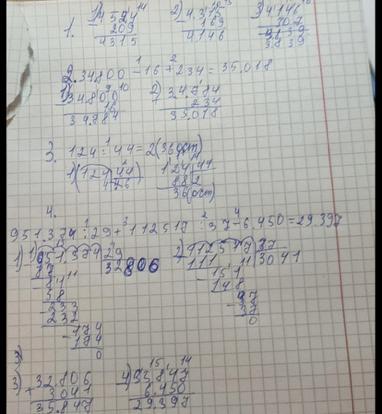 1. 4524
209
4315
169
4146
4146
307
3839
2. 34800 - 16 + 234 = 35,018
1) 34.800
16
34.784
2) 34.784
234
35.018
3. 124 : 44 = 2 (36 ост)
124 44
88 2
36 (ост)
4.
951.374 : 29 + 112517 : 37 - 6.450 = 29.397
1) 951.374 29
87 32806
81
58
233
232
174
174
0
2) 112517 37
111 3041
151
148
37
37
0
3) 32.806
+ 3041
35.847
4) 35.847
6.450
29.397